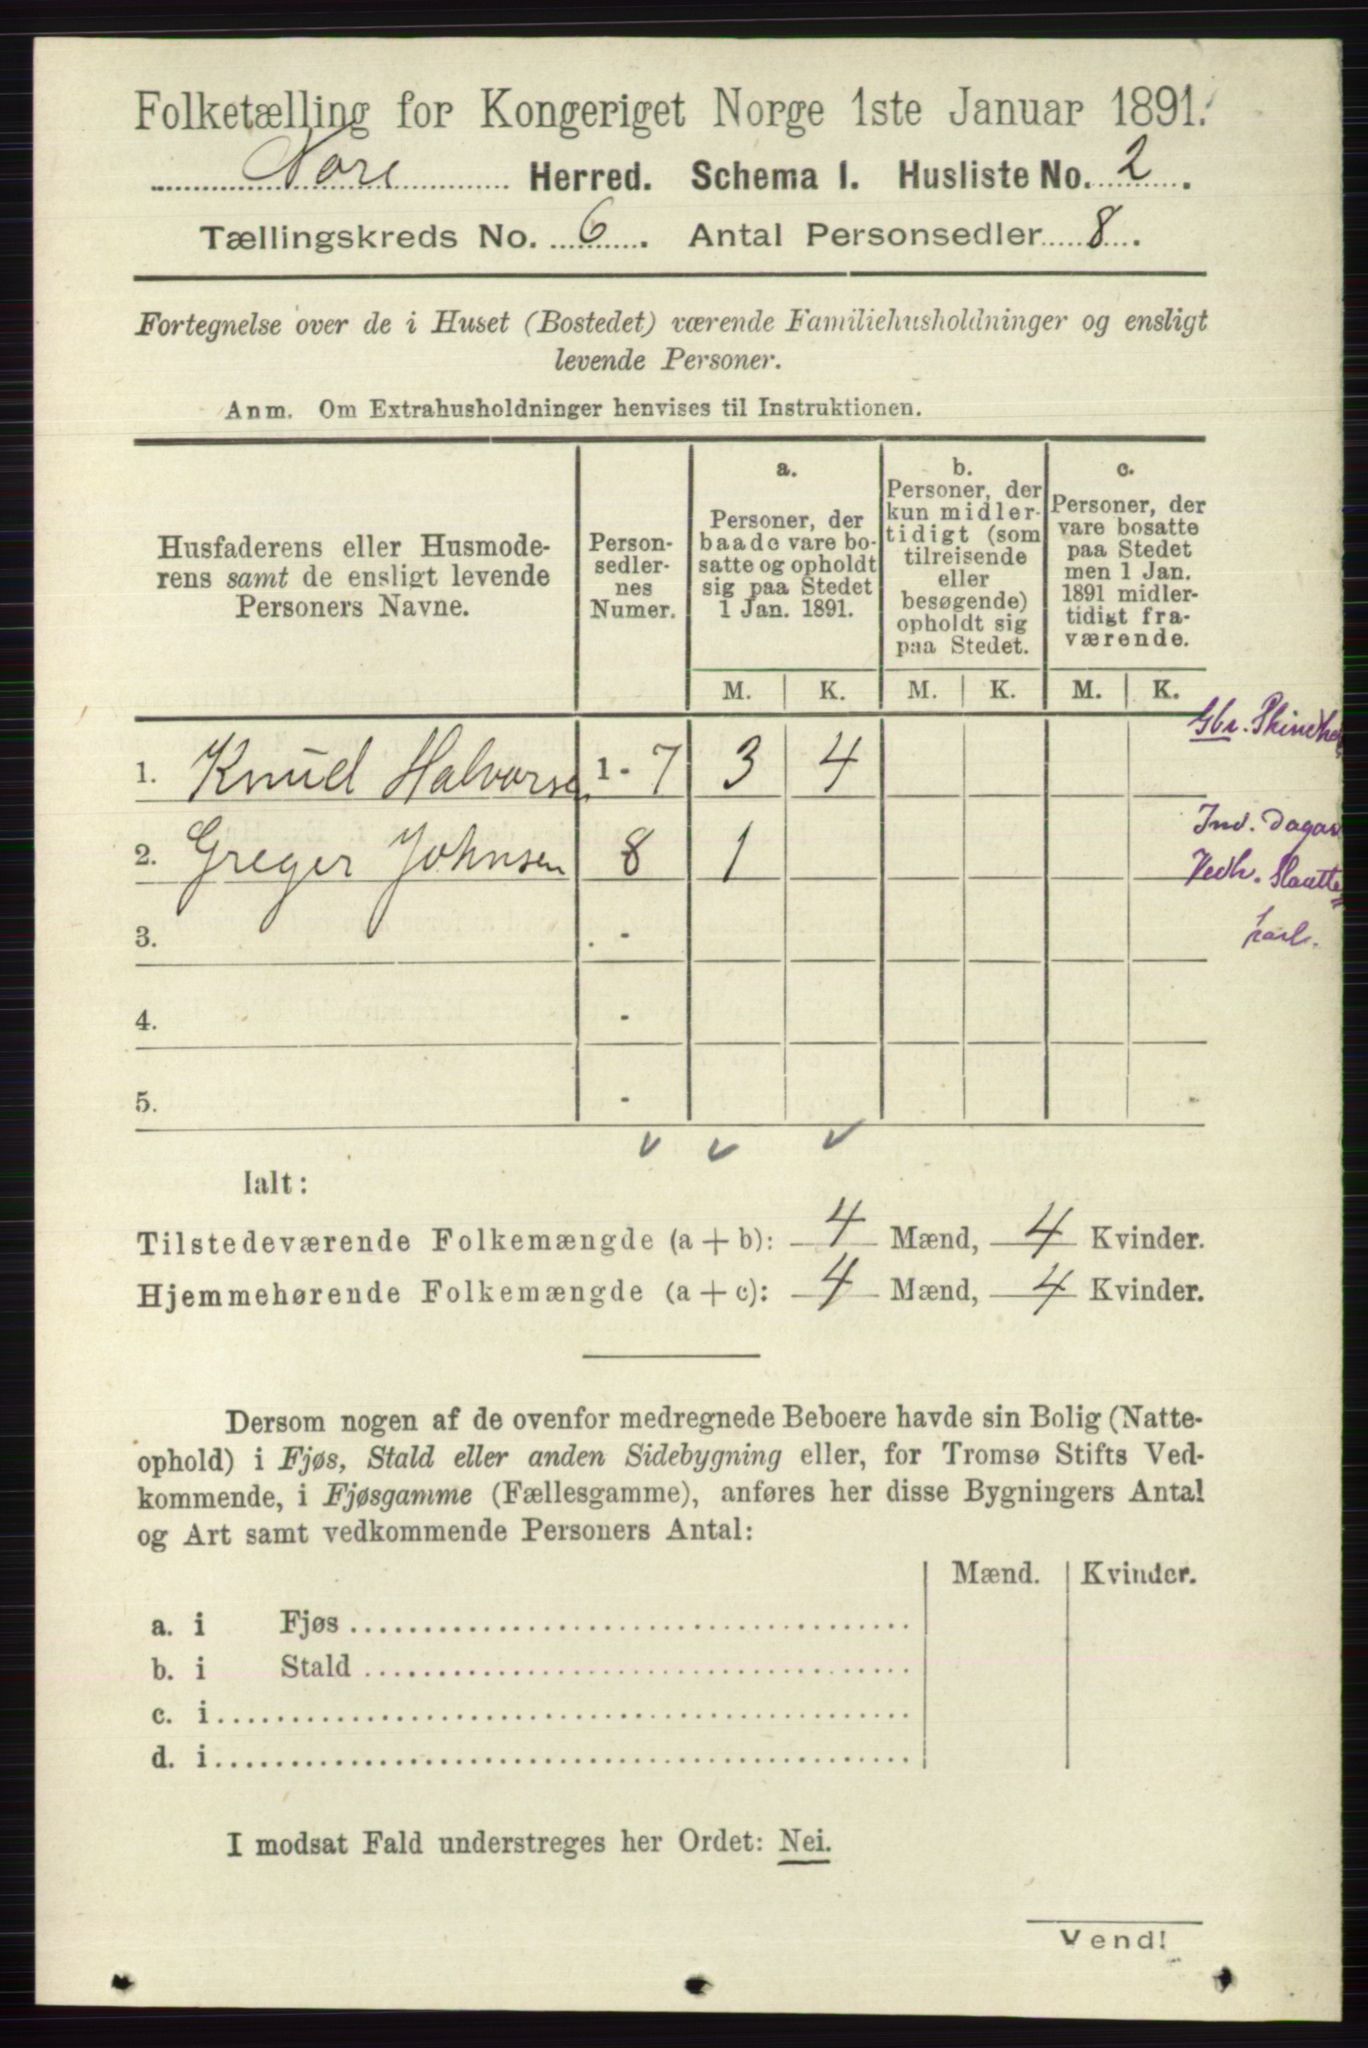 Folketælling for Kongeriget Norge 1ste Januar 1891.
Nore Herred. Schema I. Husliste No. 2.
Tællingskreds No. 6. Antal Personsedler 8.
Fortegnelse over de i Huset (Bostedet) værende Familiehusholdninger og ensligt
levende Personer.
Anm. Om Extrahusholdninger henvises til Instruktionen.
Husfaderens eller Husmode-
rens samt de ensligt levende
Personers Navne.
Person-
sedler-
nes
Numer.
a.
Personer, der
baade vare bo-
satte og opholdt
sig paa Stedet
1 Jan. 1891.
b.
Personer, der
kun midler-
tidigt (som
tilreisende
eller
besøgende)
opholdt sig
paa Stedet.
c.
Personer, der
vare bosatte
paa Stedet
men 1 Jan.
1891 midler-
tidigt fra-
værende.
M. K. M. K. M. K.
Gbr.
1. Knud Halvorsen 1 - 7 3 4
Ind.
2. Greger Johnsen 8 1
Vedh.
3. -
4. -
5. -
Ialt:
Tilstedeværende Folkemængde (a + b): 4 Mænd, 4 Kvinder.
Hjemmehørende Folkemængde (a + c): 4 Mænd, 4 Kvinder.
Dersom nogen af de ovenfor medregnede Beboere havde sin Bolig (Natte-
ophold) i Fjøs, Stald eller anden Sidebygning eller, for Tromsø Stifts Ved-
kommende, i Fjøsgamme (Fællesgamme), anføres her disse Bygningers Antal
og Art samt vedkommende Personers Antal:
Mænd. Kvinder.
a. i Fjøs
b. i Stald
c. i
d. i
I modsat Fald understreges her Ordet: Nei.
Vend!